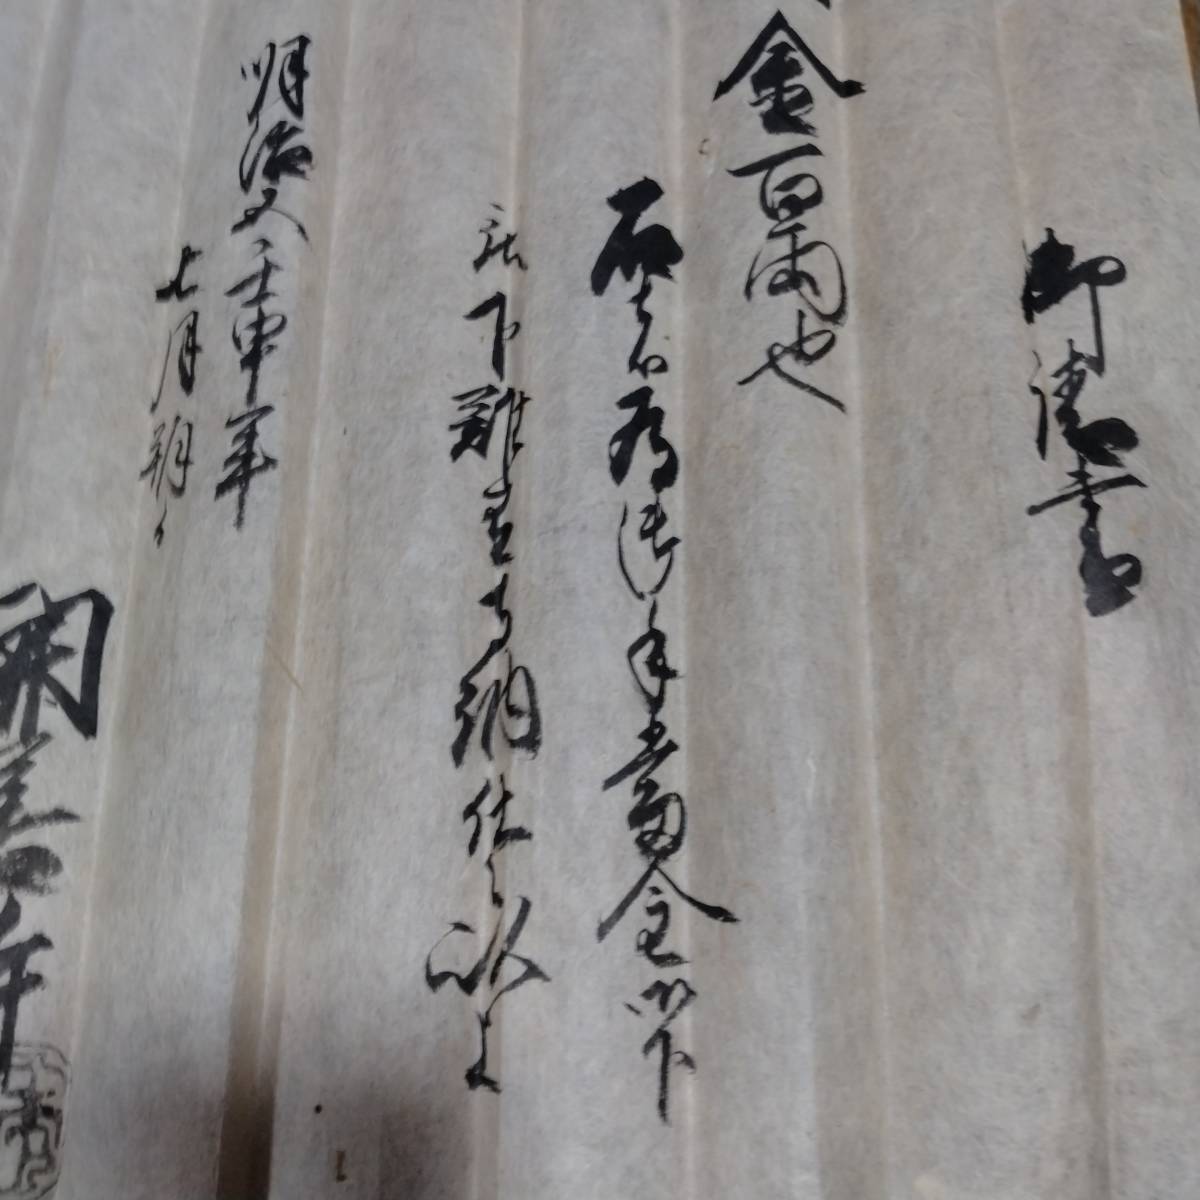 御請書
金百両也
右者為御手当金御下
被下難有奉納仕候以上
明治五壬申年
七月朔日